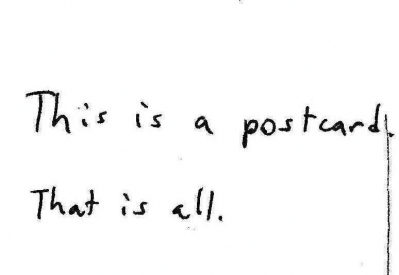 This is a postcard.
That is all.